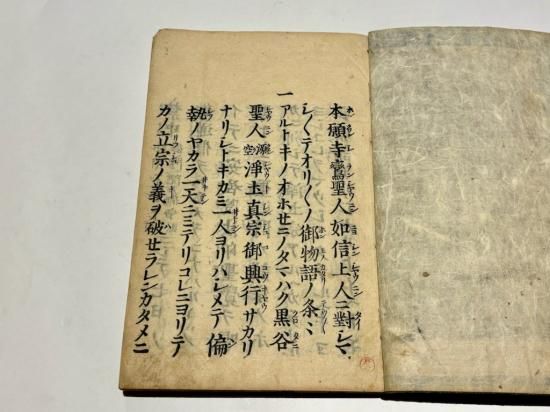 本願寺鸞聖人如信上人ニ對シマ
シ〱テオリ〱御物語ノ条々
一
アルトキノオホセニノタマハク黒谷
聖人源空浄土真宗御興行サカリ
ナリシトキカミ一人ヨリハシメテ偏
執ノヤカラ一天ニミテリコレニヨリテ
カノ立宗ノ義ヲ破セラレンカタメニ